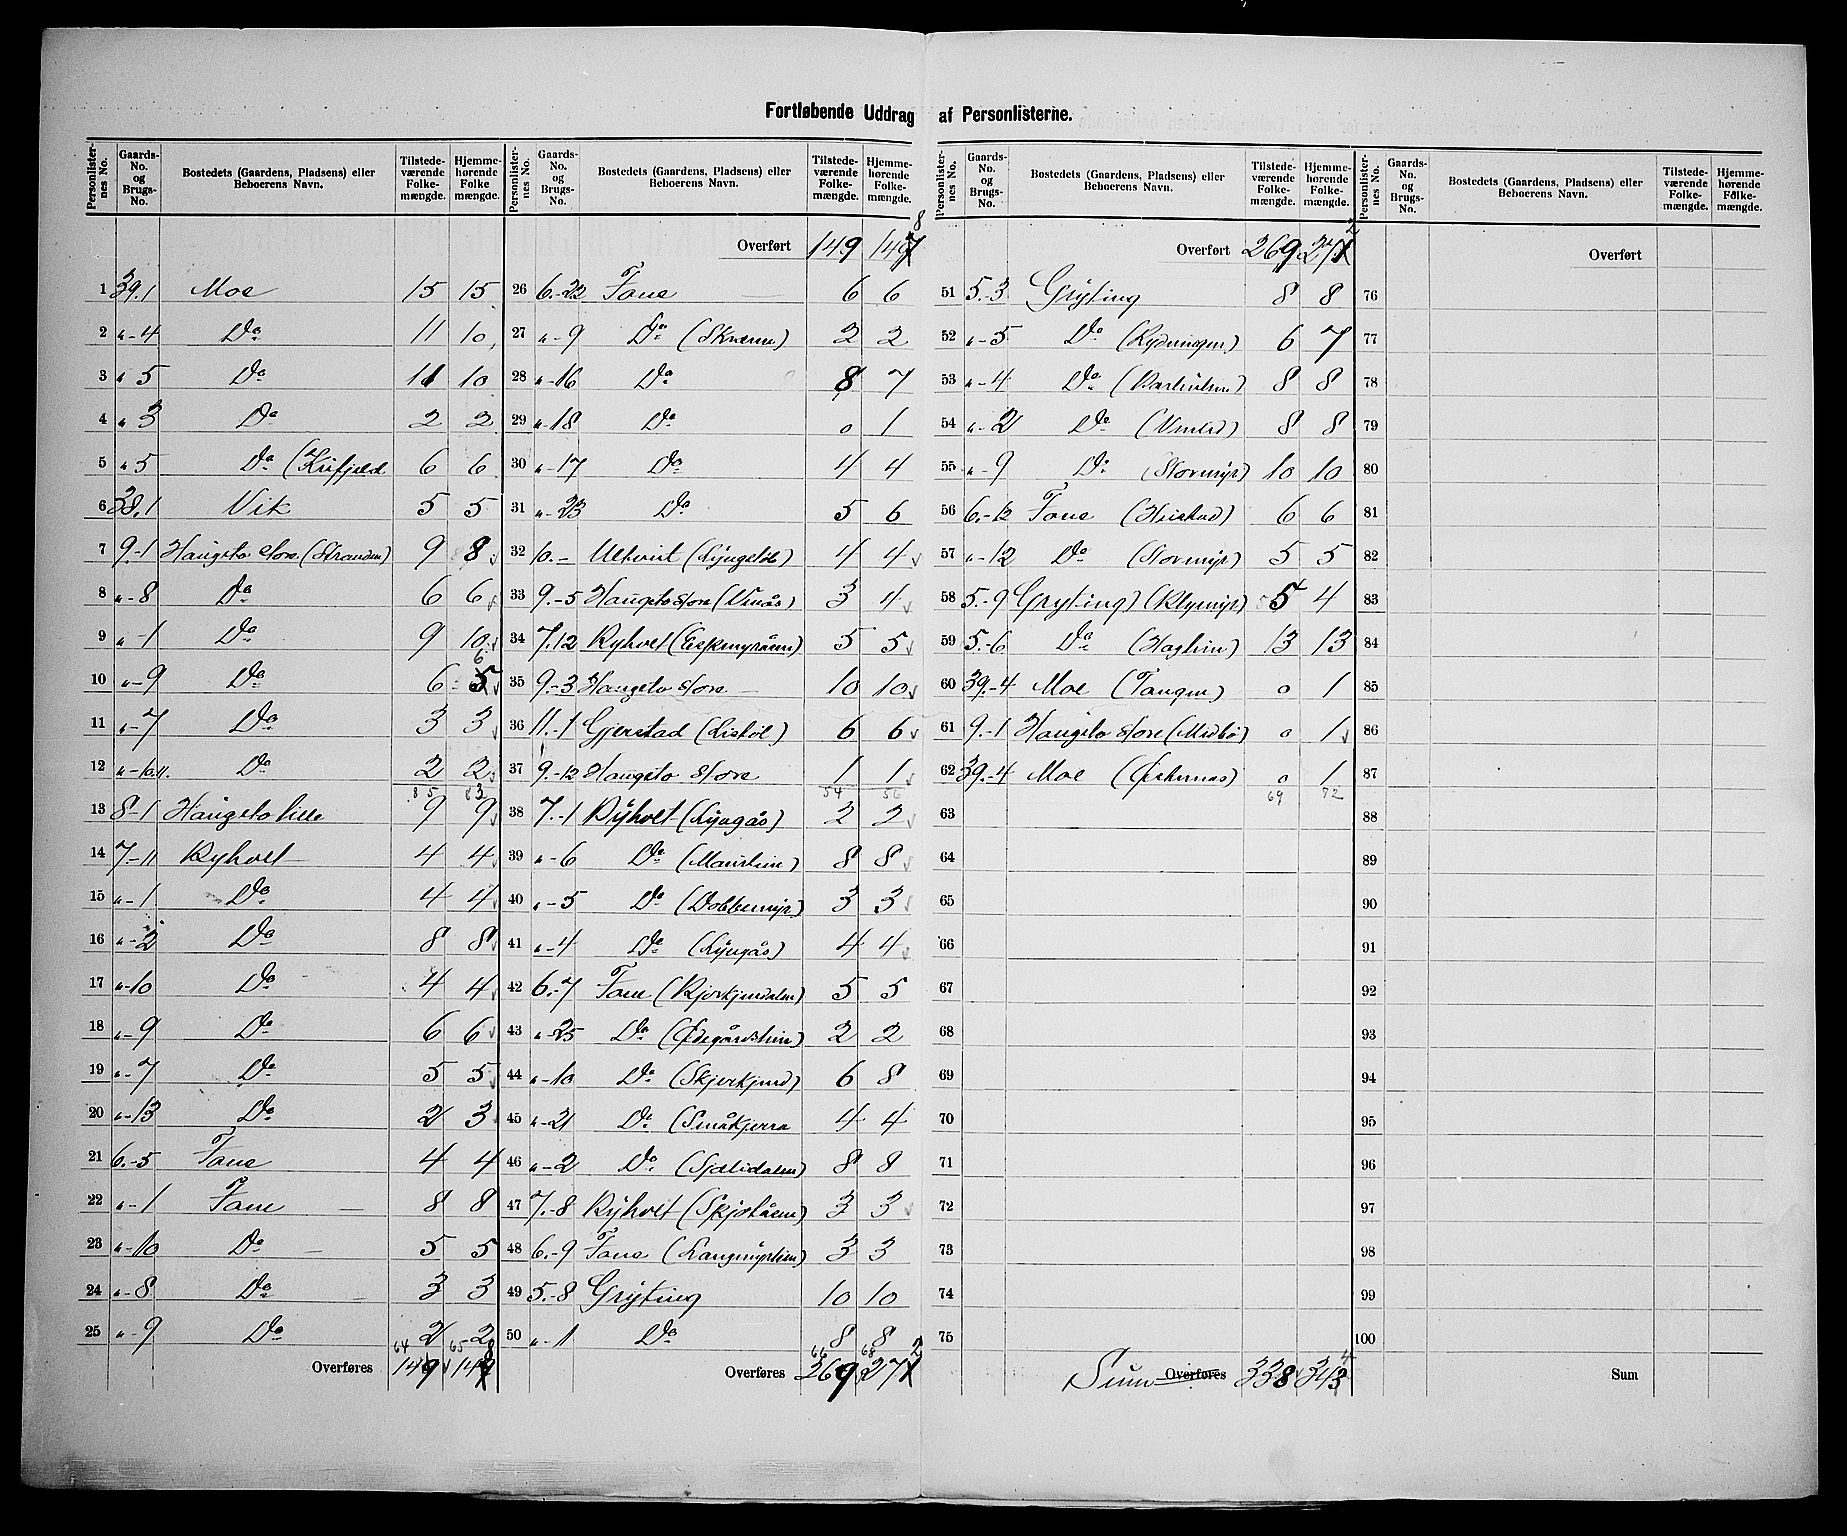 Fortløbende Uddrag af Personlisterne.
Personlisternes No. Gaards-No. og Brugs-No. Bostedets (Gaardens, Pladsens) eller Beboerens Navn. Tilstedeværende Folkemængde. Hjemmehørende Folkemængde.
1 39.1 Moe 15 15
2 „-4 Do 11 10
3 „ 5 Do 11 10
4 „ 3 Do 2 2
5 „ 5 Do 6 6
6 38.1 Vik 5 5
7 9.-1 Haugeto store (Stranden) 9 8
8 „-8 Do 6 6
9 „-1 Do 9 10
10 „-9 Do 6 5 6
11 „-7 Do 3 3
12 „-10.11. Do 2 2
85 83
13 8-1 Haugeto lille 9 9
14 7.-11 Ryholt 4 4
15 „-1 Do 4 4
16 „-2 Do 8 8
17 „-10 Do 4 4
18 „-9 Do 6 6
19 „-7 Do 5 5
20 „-13 Do 2 3
21 6.-5 Fone 4 4
22 „-1 Fone 8 8
23 „-10 Do 5 5
24 „-8 Do 3 3
25 „-9 Do 2 2
64 65
Overføres 149 148
Personlisternes No. Gaards-No. og Brugs-No. Bostedets (Gaardens, Pladsens) eller Beboerens Navn. Tilstedeværende Folkemængde. Hjemmehørende Folkemængde.
Overført 149 148
26 6.-22 Fone 6 6
27 „-9 Do 2 2
28 „-16 Do 8 7
29 „-18 Do 0 1
30 „-17 Do 4 4
31 „-23 Do 5 6
32 10.- 4 4
33 9.-5 Haugeto store (Vinås) 3 4
34 7.12 Ryholt 5 5
35 9.-3 Haugeto store 10 10
36 11.-1 Gjerstad 6 6
37 9.-12 Haugeto store 1 1
54 56
38 7.-1 Ryholt (Lyngås) 2 2
39 „-6 Do 8 8
40 „-5 Do (Dobbemyr) 3 3
41 „-4 Do (Lyngås) 4 4
42 6.-7 Fone 5 5
43 „-25 Do (Ødegårdslien) 2 2
44 „-10 Do (Skjerkjend) 6 8
45 „-21 Do (Småkjerra 4 4
46 „-2 Do 8 8
47 7.-8 Ryholt 3 3
48 6.-9 Fone (Langmyrlien) 3 3
49 5.-8 Gryting 10 10
50 „-1 Do 8 8
66 68
Overføres 269 271 2
Personlisternes No. Gaards-No. og Brugs-No. Bostedets (Gaardens, Pladsens) eller Beboerens Navn. Tilstedeværende Folkemængde. Hjemmehørende Folkemængde.
Overført 269 271 2
51 5.-3 Gryting 8 8
52 „-5 Do 6 7
53 „-4 Do 8 8
54 „-2 Do 8 8
55 „-9 Do (Stormyr) 10 10
56 6.-12 Fone 6 6
57 „-12 Do (Stormyr) 5 5
58 5.-9 Gryting) 5 4
59 5.-6 Do 13 13
60 39.-4 Moe (Tangen) 0 1
61 9.-1 Haugeto store (Midbø) 0 1
62 39.-4 Moe (Øskernas) 0 1
69 72
63
64
65
66
67
68
69
70
71
72
73
74
75
Sum Overføres 338 343 4
Personlisternes No. Gaards-No. og Brugs-No. Bostedets (Gaardens, Pladsens) eller Beboerens Navn. Tilstedeværende Folkemængde. Hjemmehørende Folkemængde.
Overført
76
77
78
79
80
81
82
83
84
85
86
87
88
89
90
91
92
93
94
95
96
97
98
99
100
Sum